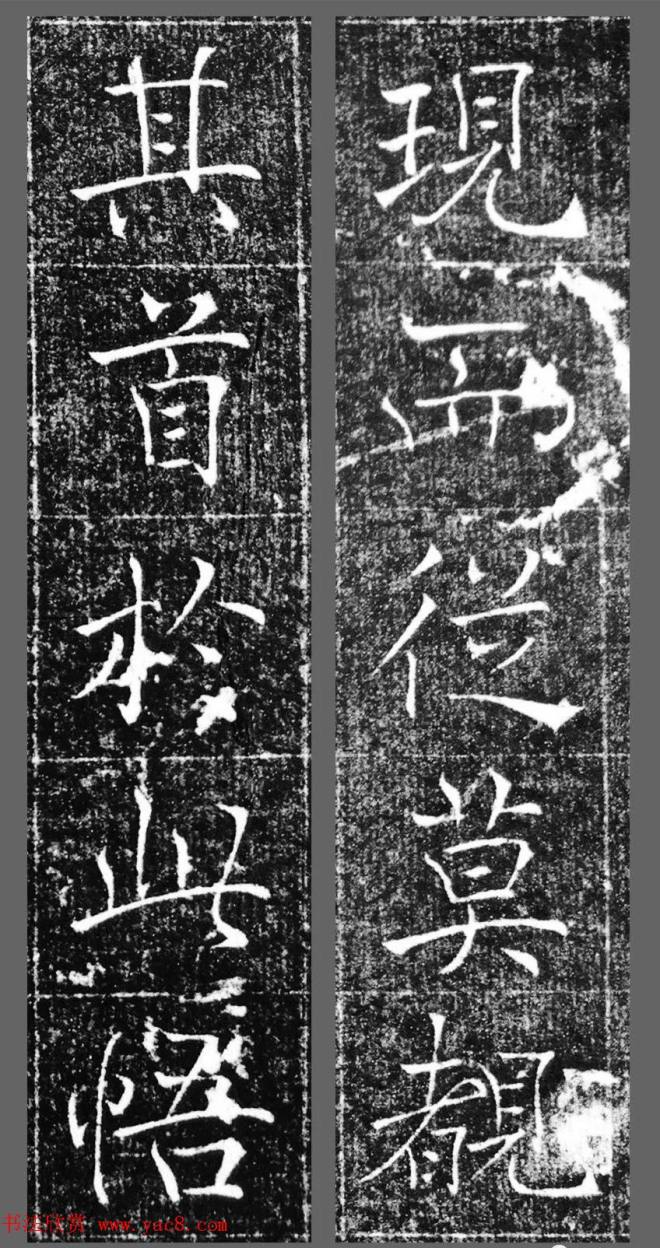 現而從莫覩
其首於此悟
书法欣赏 www.yac8.com